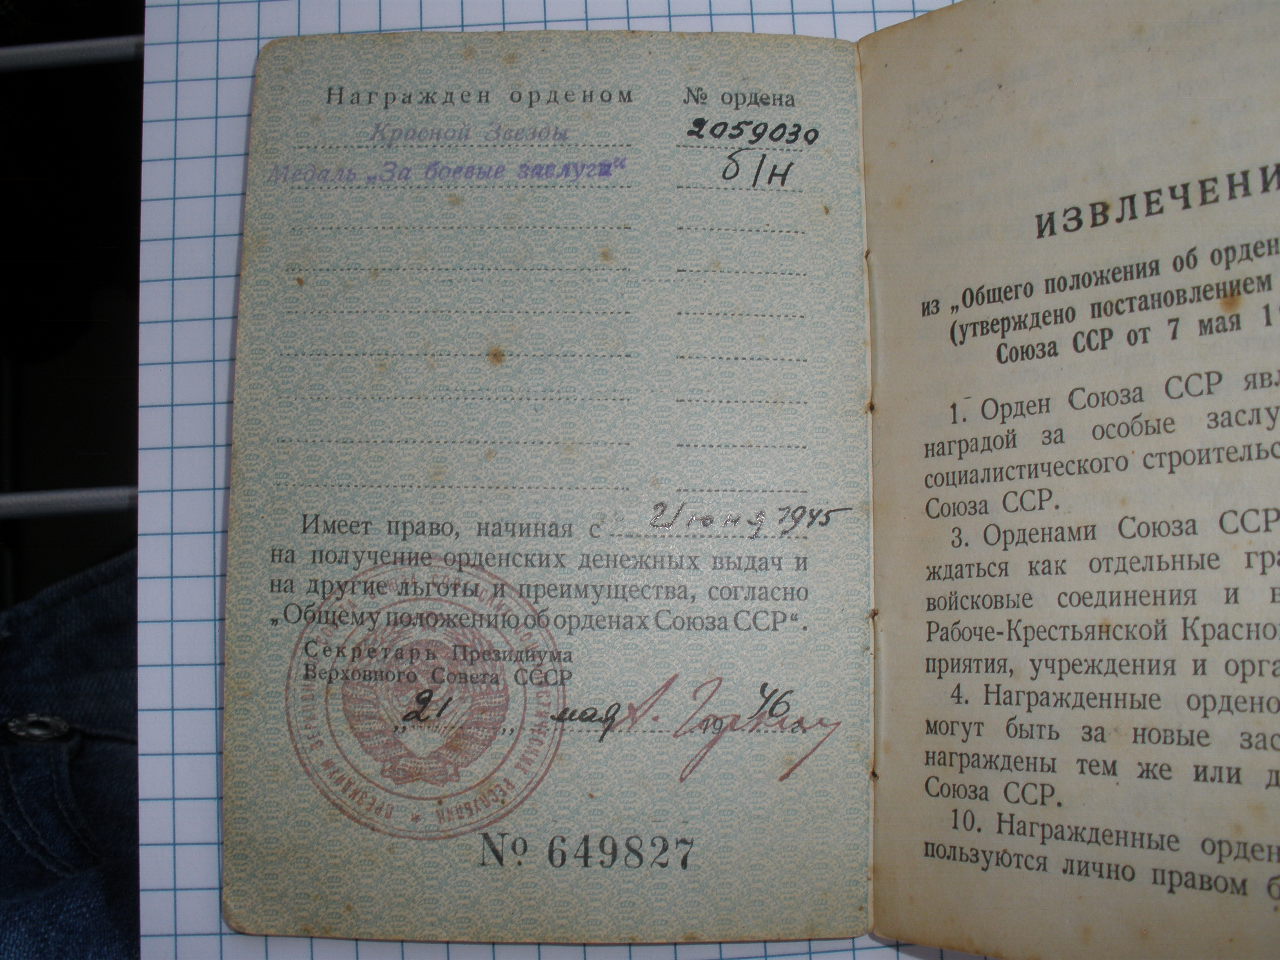 Награжден орденом № ордена
Красной Звезды 2059030
Медаль „За боевые заслуги“ б/н
Имеет право, начиная с 2/июня 1945
на получение орденских денежных выдач и
на другие льготы и преимущества, согласно
„Общему положению об орденах Союза ССР“.
Секретарь Президиума
Верховного Совета СССР
„21„ мая 46
№ 649827
ИЗВЛЕЧЕНИ
из „Общего положения об орден
(утверждено постановлением
Союза ССР от 7 мая 1
1. Орден Союза ССР явл
наградой за особые заслу
социалистического строительс
Союза ССР.
3. Орденами Союза ССР
ждаться как отдельные гра
войсковые соединения и в
Рабоче-Крестьянской Красно
приятия, учреждения и орга
4. Награжденные ордено
могут быть за новые зас
награждены тем же или д
Союза ССР.
10. Награжденные орден
пользуются лично правом б